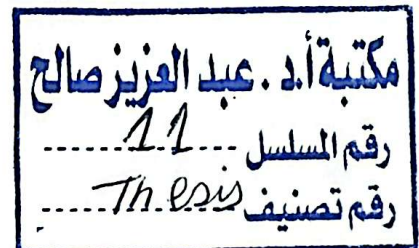 مكتبة أ.د. عبد العزيز صالح
رقم المسلسل 11
رقم تصنيف Thesis